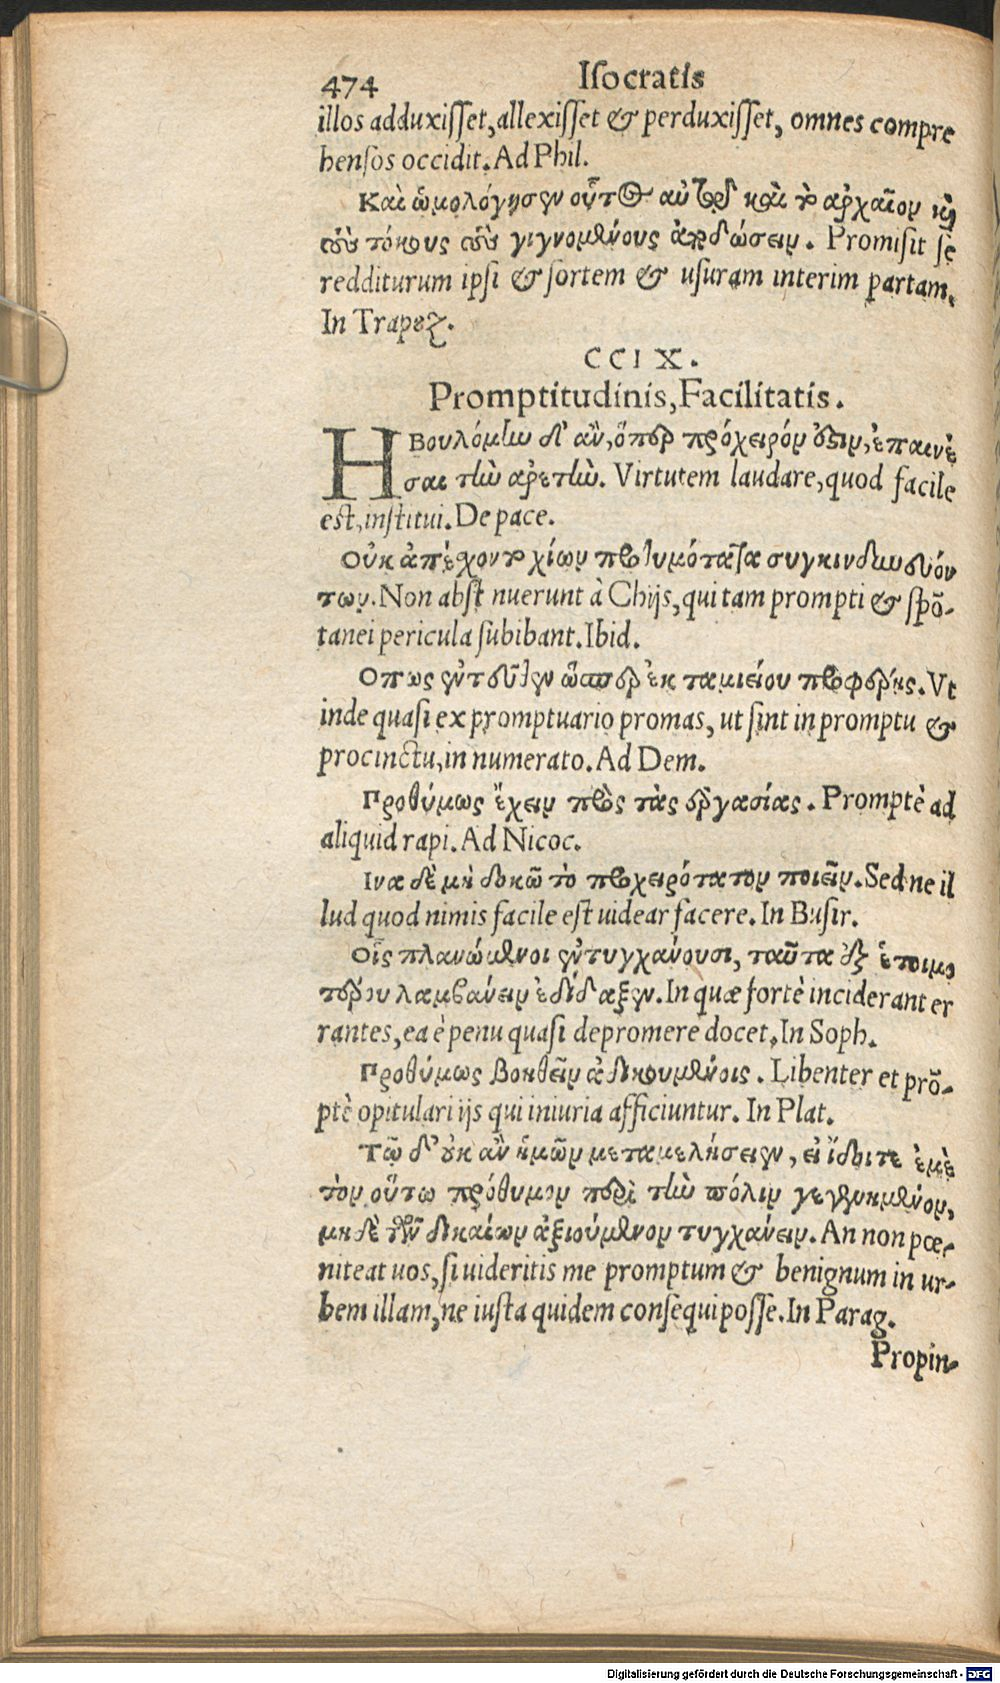 474 Iſocratis
illos adduxiſſet, allexiſſet & perduxiſſet, omnes compre
henſos occidit. Ad Phil.
Καὶ ὡμολόγησεν οὗτος αὐτῷ καὶ τὸ ἀρχαῖον καὶ
τοὺς τόκους τοὺς γιγνομένους ἀποδώσειν. Promiſit ſe
redditurum ipſi & ſortem & uſuram interim partam.
In Trapez.
CCIX.
Promptitudinis, Facilitatis.
ΗΒουλόμην δ' ἂν, ὅπερ πρόχειρόν ἐστιν, ἐπαινέ
σαι τὴν ἀρετὴν. Virtutem laudare, quod facile
eſt, inſtitui. De pace.
Οὐκ ἀπέχοντο χίων προθυμότατα συγκινδυνευόν
των. Non abſtinuerunt à Chijs, qui tam prompti & ſpō-
tanei pericula ſubibant. Ibid.
Οπως ἐντεῦθεν ὥσπερ ἐκ ταμιείου προφέρῃς. Vt
inde quaſi ex promptuario promas, ut ſint in promptu &
procinctu, in numerato. Ad Dem.
Προθύμως ἔχειν πρὸς τὰς ἐργασίας. Promptè ad
aliquid rapi. Ad Nicoc.
Ινα δὲ μὴ δοκῶ τὸ προχειρότατον ποιεῖν. Sed ne il
lud quod nimis facile eſt uidear facere. In Buſir.
Οἷς πλανώμενοι ἐντυγχάνουσι, ταῦτα ἐξ ἑτοιμο
τέρου λαμβάνειν ἐδίδαξεν. In quæ fortè inciderant er
rantes, ea è penu quaſi depromere docet. In Soph.
Προθύμως βοηθεῖν ἀδικουμένοις. Libenter et prō-
ptè opitulari ijs qui iniuria afficiuntur. In Plat.
Τῷ δ' οὐκ ἂν ἡμῶν μεταμελήσειεν, εἰ ἴδοιτε ἐμὲ
τὸν οὕτω πρόθυμον περὶ τὴν πόλιν γεγενημένον,
μηδὲ τῶν δικαίων ἀξιούμενον τυγχάνειν. An non pœ-
niteat uos, ſi uideritis me promptum & benignum in ur-
bem illam, ne iuſta quidem conſequi poſſe. In Parag.
Propin-
Digitalisierung gefördert durch die Deutsche Forschungsgemeinschaft - DFG